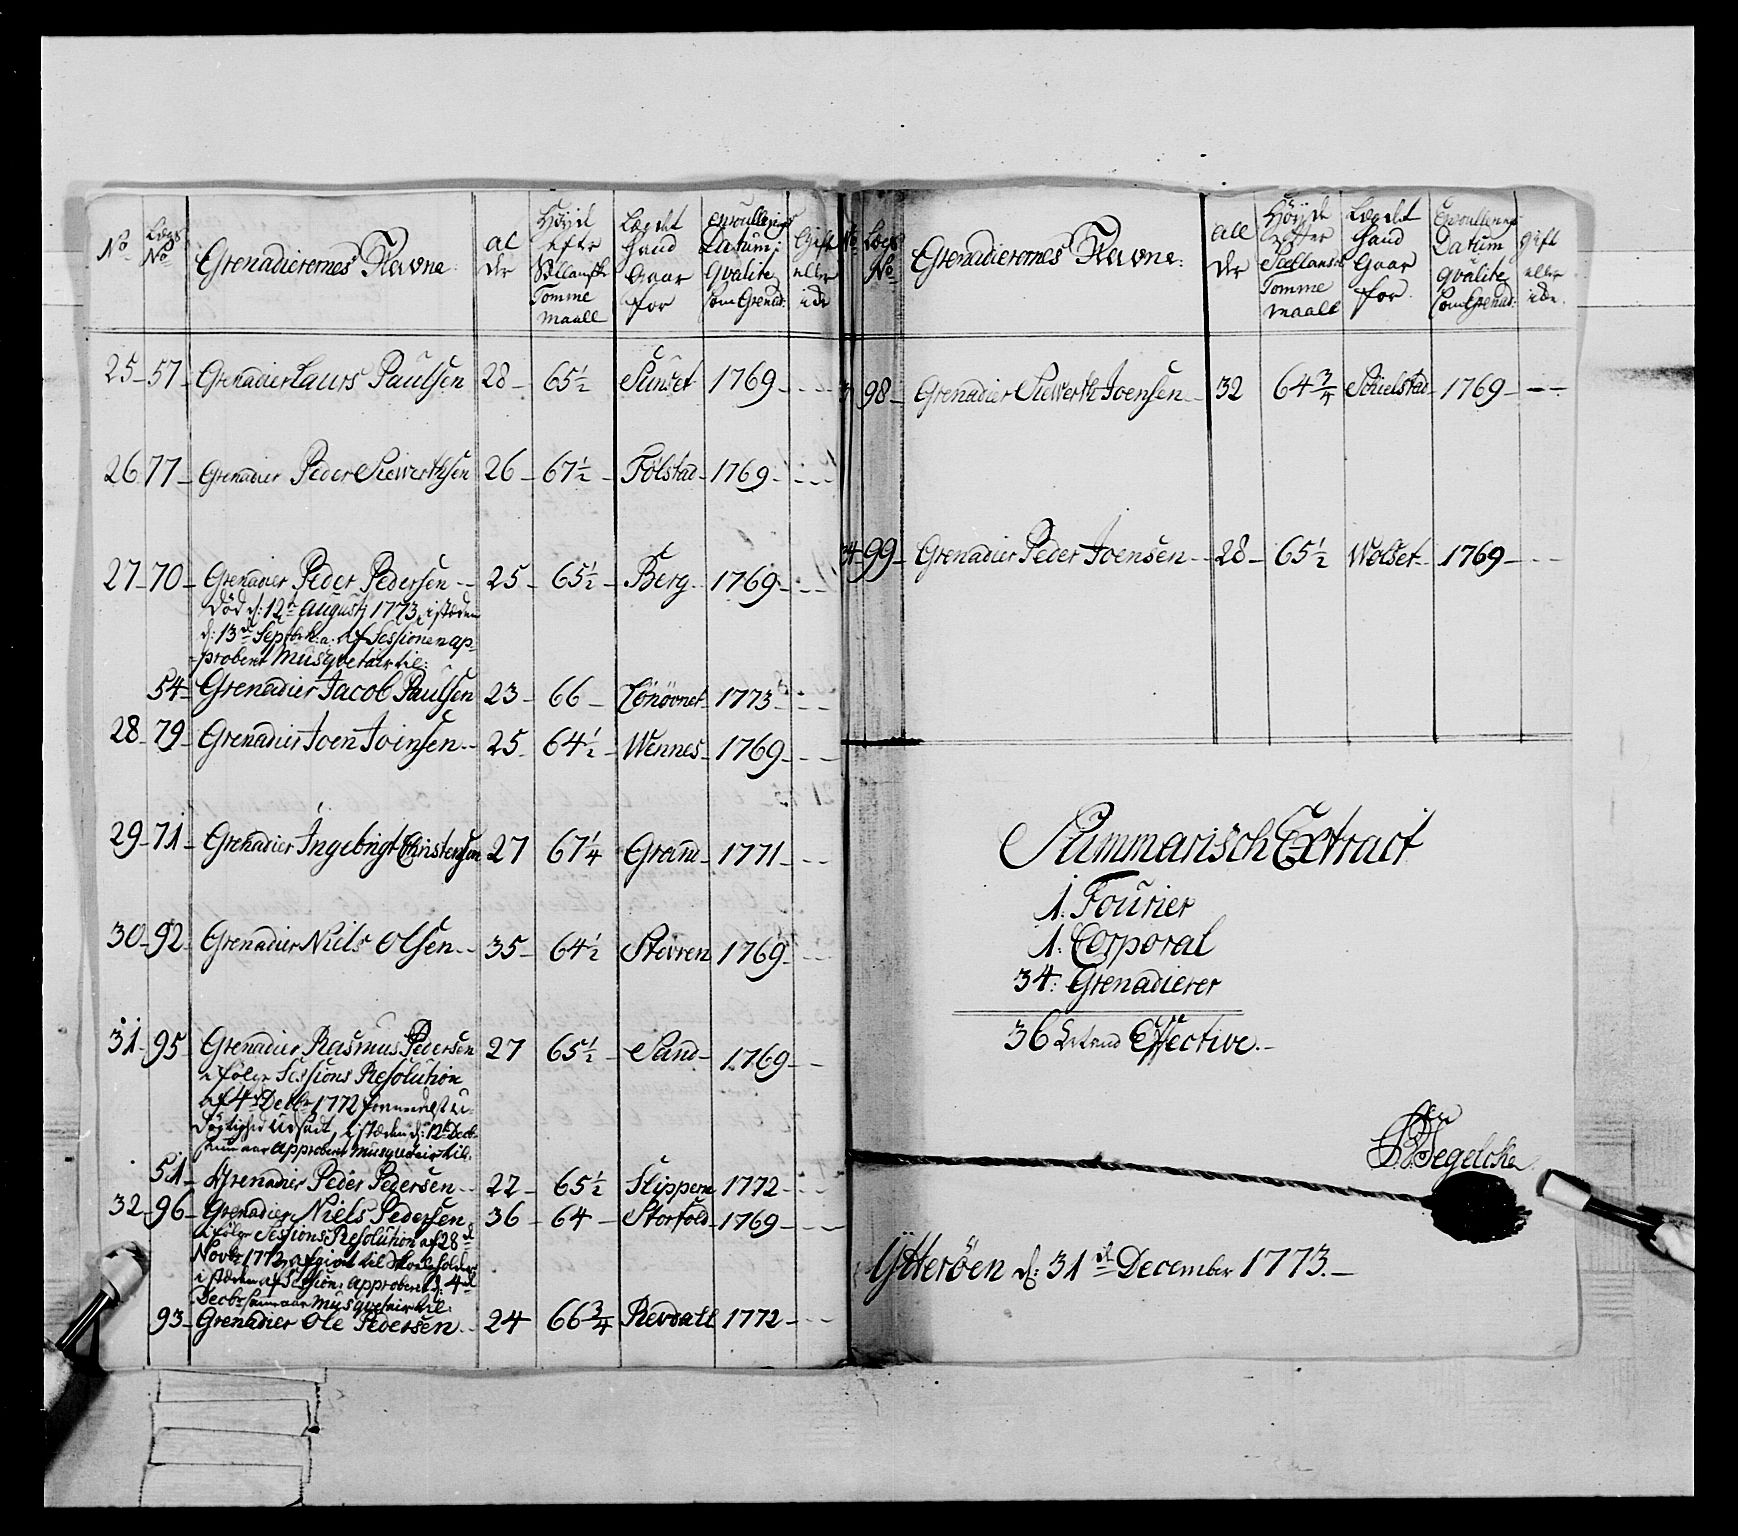 No
Lægs No
Grenadierernes Navne.
al der
Høyde efter Sællansk Tomme maall
Lægdet hand Gaar for
Enroullerings Datum; qvalite som Grenad:
Gift eller ide
25 - 57 - Grenadier Laurs Paulsen 28 - 65½ Sunset 1769 - - -
26 77 - Grenadier Peder Siewerthsen 26 - 67½ - Fölstad - 1769 - - -
27 - 70 - Grenadier Peder Pedersen - - 25 - 65½ - Berg - 1769 - - -
Död d: 12te August 1773, i stæden
d: 13de Septbr h: a: af Sessionen ap-
proberet Musqvetair til:
54 - Grenadier Jacob Paulsen 23 - 66 - 1773 - - -
28 - 79 - Grenadier Joen Joensen - - 25 - 64½ - Wennes - 1769 - - -
29 - 71 - Grenadier Ingebrigt Christensen 27 67¼ Grand - 1771 - - -
30 - 92 - Grenadier Niels Olsen - - 35 - 64½ Stevren 1769 - - -
31 - 95 - Grenadier Rasmus Pedersen 27 65½ - Sand - 1769 - -
i følge Sessions Resolution
af 4de Decbr 1772 formedelst u-
dögtighed udsadt, i stæden d: 12te Decbr
sam aar Approberet Musquetair til:
51 - Grenadier Peder Pedersen - - 22 - 65½ Slipperne 1772 - - -
32 - 96 - Grenadier Niels Pedersen 36 - 64 - Storfold - 1769 - - -
i følge Sessions Resolution af 28de
Novbr 1772, afgivet til Skoeleholder
i stæden af Session: approberet d: 4de
Decbr sam aar Musqvetair til:
93 - Grenadier Ole Pedersen - - 24 - 66¾ Revdall 1772 - - -
No
Lægs No
Grenadierernes Navne:
all der
Høyde efter Sællansk Tomme maall
Lægdet hand Gaar for
Enroullerings Datum qvalite som Grenad:
gift eller ide.
98 - Grenadier Siewerth Joensen - 32 64¾ Schielstad - 1769 - - -
34 - 99 - Grenadier Peder Joensen - - 28 - 65½ Wolset - 1769 - - -
Summarisch Extract
1. Fourier
1. Corporal
34: Grenadierer
36 Effective. -
Tegelcke
Ytterøen d: 31de December 1773. -